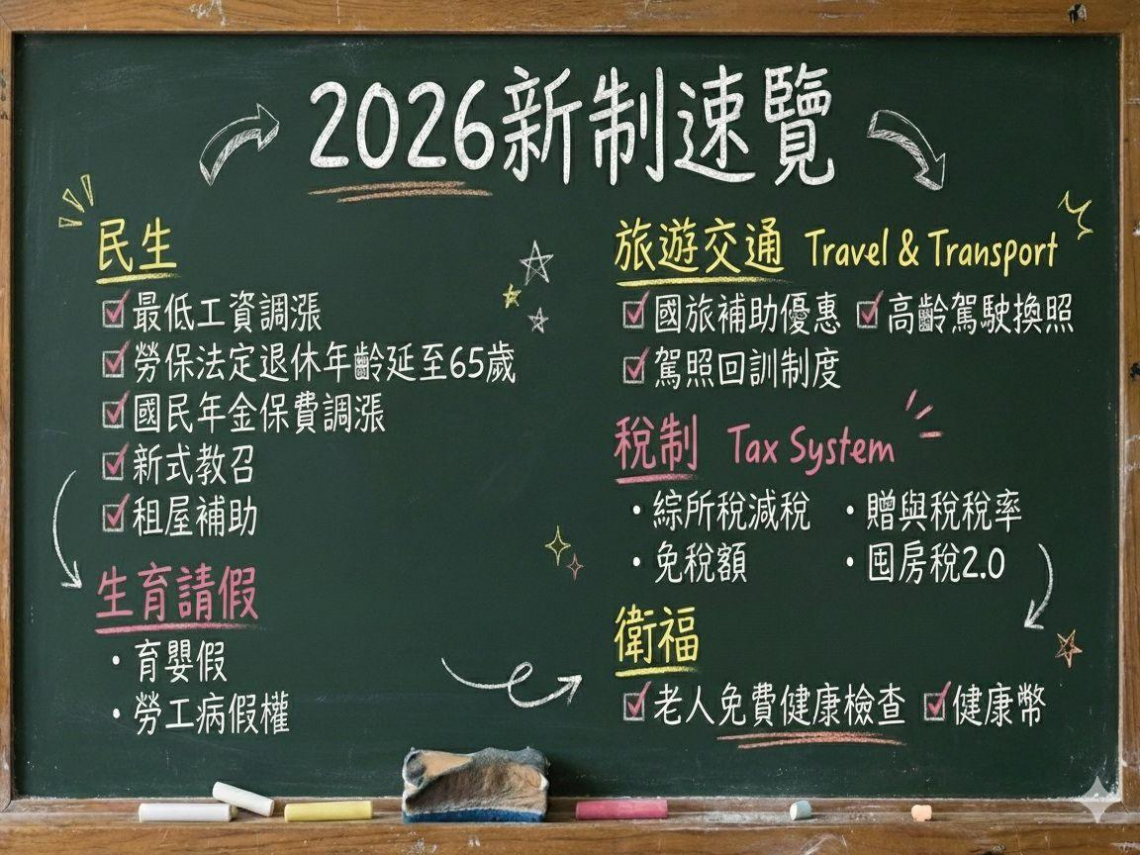 2026新制速覽
民生
最低工資調漲
勞保法定退休年齡延至65歲
國民年金保費調漲
新式教召
租屋補助
生育請假
・育嬰假
・勞工病假權
旅遊交通 Travel & Transport
國旅補助優惠 高齡駕駛換照
駕照回訓制度
稅制 Tax System
・綜所稅減稅 ・贈與稅稅率
・免稅額 ・囤房稅2.0
衛福
老人免費健康檢查 健康幣